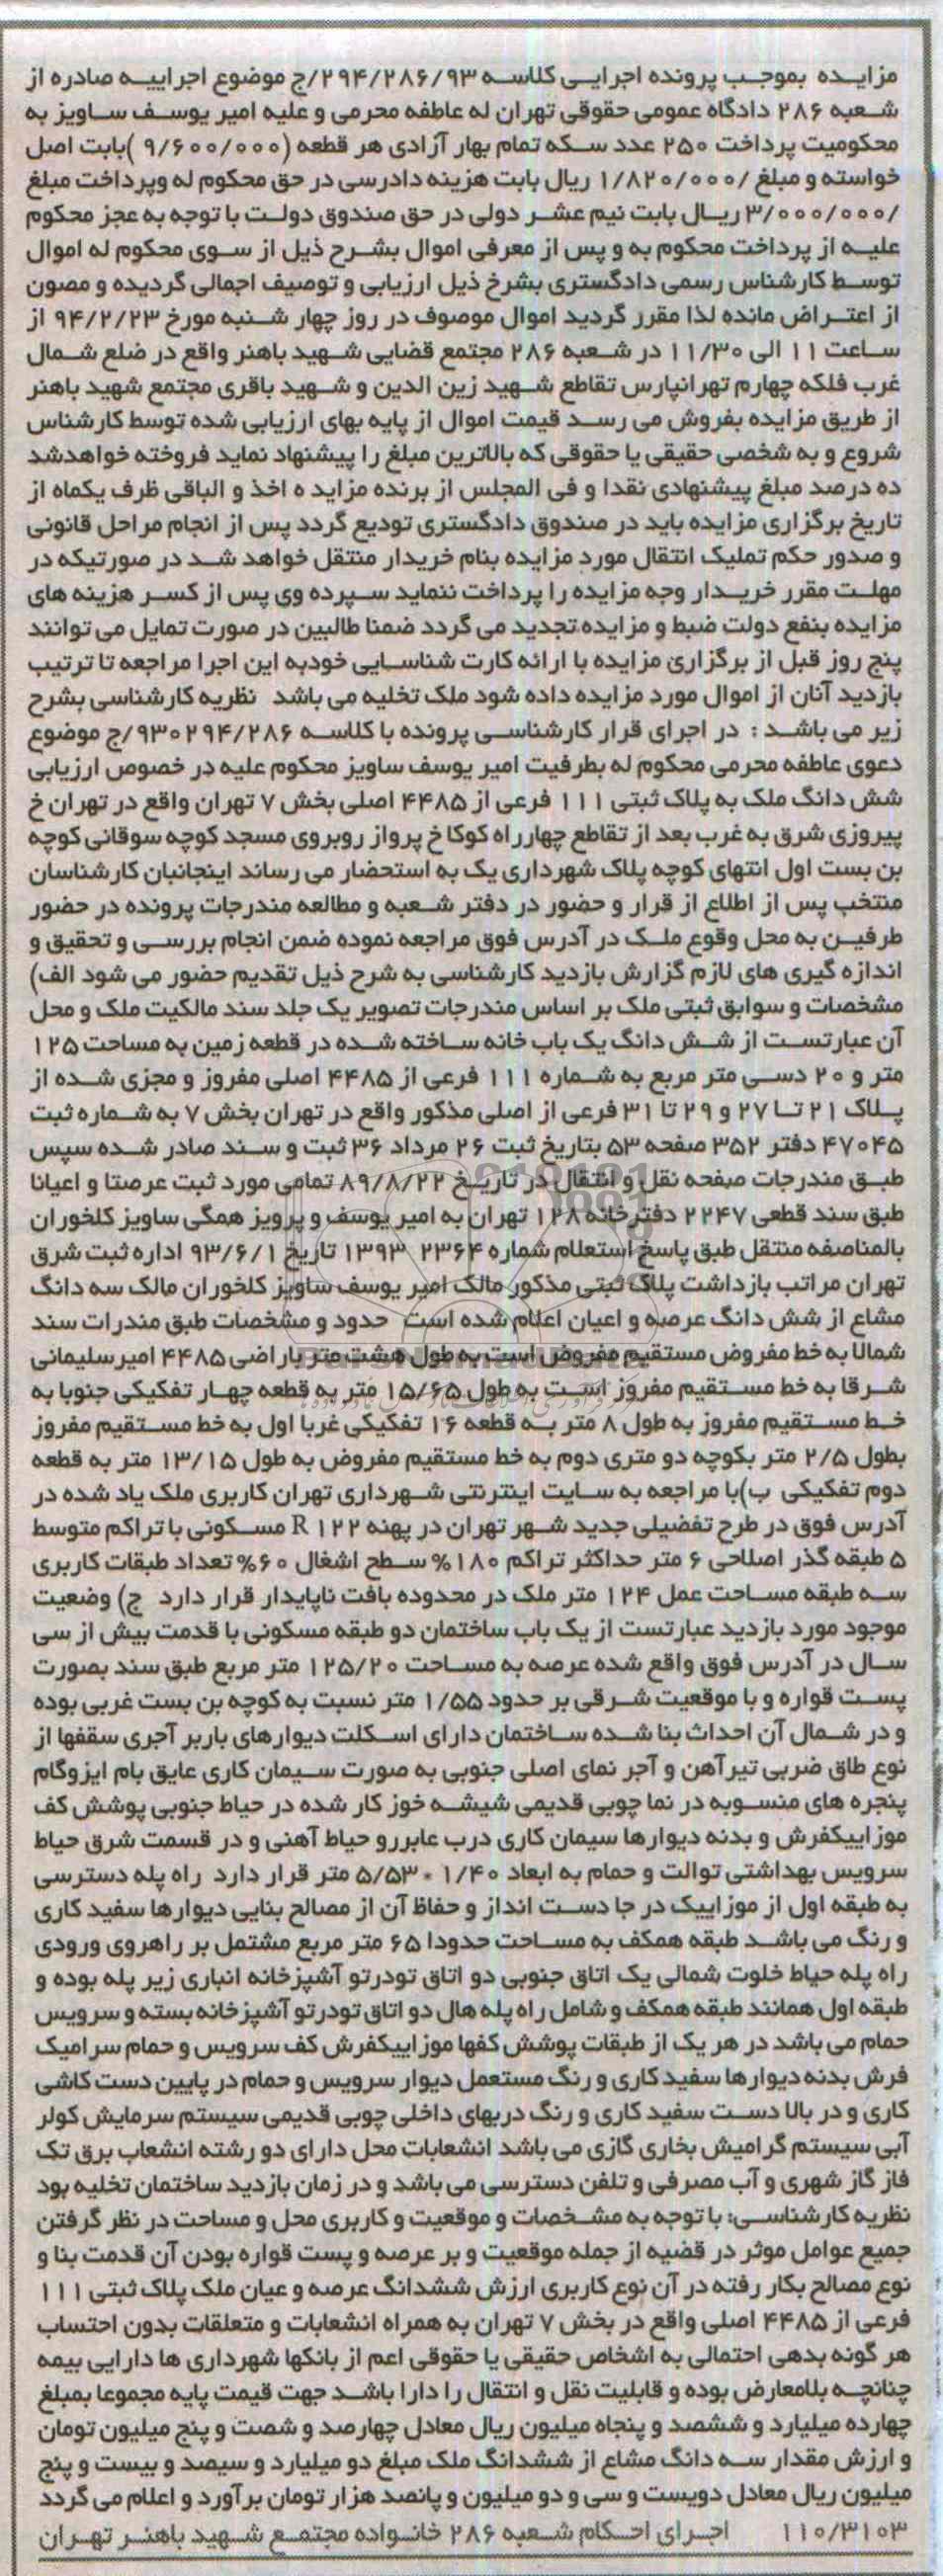 مزایده بموجب پرونده اجرایی کلاسه ۲۹۴/۲۸۶/۹۳/ج موضوع اجراییه صادره از
شعبه ۲۸۶ دادگاه عمومی حقوقی تهران له عاطفه محرمی و علیه امیر یوسف ساویز به
محکومیت پرداخت ۲۵۰ عدد سکه تمام بهار آزادی هر قطعه (۹/۶۰۰/۰۰۰ )بابت اصل
خواسته و مبلغ /۱/۸۲۰/۰۰۰ ریال بابت هزینه دادرسی در حق محکوم له وپرداخت مبلغ
/۳/۰۰۰/۰۰۰ریال بابت نیم عشر دولی در حق صندوق دولت با توجه به عجز محکوم
علیه از پرداخت محکوم به و پس از معرفی اموال بشرح ذیل از سوی محکوم له اموال
توسط کارشناس رسمی دادگستری بشرخ ذیل ارزیابی و توصیف اجمالی گردیده و مصون
از اعتراض مانده لذا مقرر گردید اموال موصوف در روز چهار شنبه مورخ ۹۴/۲/۲۳ از
ساعت ۱۱ الی ۱۱/۳۰ در شعبه ۲۸۶ مجتمع قضایی شهید باهنر واقع در ضلع شمال
غرب فلکه چهارم تهرانپارس تقاطع شهید زین الدین و شهید باقری مجتمع شهید باهنر
از طریق مزایده بفروش می رسد قیمت اموال از پایه بهای ارزیابی شده توسط کارشناس
شروع و به شخصی حقیقی یا حقوقی که بالاترین مبلغ را پیشنهاد نماید فروخته خواهدشد
ده درصد مبلغ پیشنهادی نقدا و فی المجلس از برنده مزاید ه اخذ و الباقی ظرف یکماه از
تاریخ برگزاری مزایده باید در صندوق دادگستری تودیع گردد پس از انجام مراحل قانونی
و صدور حکم تملیک انتقال مورد مزایده بنام خریدار منتقل خواهد شد در صورتیکه در
مهلت مقرر خریدار وجه مزایده را پرداخت ننماید سپرده وی پس از کسر هزینه های
مزایده بنفع دولت ضبط و مزایده تجدید می گردد ضمنا طالبین در صورت تمایل می توانند
پنج روز قبل از برگزاری مزایده با ارائه کارت شناسایی خودبه این اجرا مراجعه تا ترتیب
بازدید آنان از اموال مورد مزایده داده شود ملک تخلیه می باشد نظریه کارشناسی بشرح
زیر می باشد : در اجرای قرار کارشناسی پرونده با کلاسه ۹۳۰۲۹۴/۲۸۶/ج موضوع
دعوی عاطفه محرمی محکوم له بطرفیت امیر یوسف ساویز محکوم علیه در خصوص ارزیابی
شش دانگ ملک به پلاک ثبتی ۱۱۱ فرعی از ۴۴۸۵ اصلی بخش ۷ تهران واقع در تهران خ
پیروزی شرق به غرب بعد از تقاطع چهارراه کوکا خ پرواز روبروی مسجد کوچه سوقانی کوچه
بن بست اول انتهای کوچه پلاک شهرداری یک به استحضار می رساند اینجانبان کارشناسان
منتخب پس از اطلاع از قرار و حضور در دفتر شعبه و مطالعه مندرجات پرونده در حضور
طرفین به محل وقوع ملک در آدرس فوق مراجعه نموده ضمن انجام بررسی و تحقیق و
اندازه گیری های لازم گزارش بازدید کارشناسی به شرح ذیل تقدیم حضور می شود الف)
مشخصات و سوابق ثبتی ملک بر اساس مندرجات تصویر یک جلد سند مالکیت ملک و محل
آن عبارتست از شش دانگ یک باب خانه ساخته شده در قطعه زمین به مساحت ۱۲۵
متر و ۲۰ دسی متر مربع به شماره ۱۱۱ فرعی از ۴۴۸۵ اصلی مفروز و مجزی شده از
پلاک ۲۱ تا ۲۷ و ۲۹ تا ۳۱ فرعی از اصلی مذکور واقع در تهران بخش ۷ به شماره ثبت
۴۷۰۴۵ دفتر ۳۵۲ صفحه ۵۳ بتاریخ ثبت ۲۶ مرداد ۳۶ ثبت و سند صادر شده سپس
طبق مندرجات صفحه نقل و انتقال در تاریخ ۸۹/۸/۲۲ تمامی مورد ثبت عرصتا و اعیانا
طبق سند قطعی ۲۲۴۷ دفترخانه ۱۲۸ تهران به امیر یوسف و پرویز همگی ساویز کلخوران
بالمناصفه منتقل طبق پاسخ استعلام شماره ۲۳۶۴ ۱۳۹۳ تاریخ ۹۳/۶/۱ اداره ثبت شرق
تهران مراتب بازداشت پلاک ثبتی مذکور مالک امیر یوسف ساویز کلخوران مالک سه دانگ
مشاع از شش دانگ عرصه و اعیان اعلام شده است حدود و مشخصات طبق مندرات سند
شمالا به خط مفروض مستقیم مفروض است به طول هشت متر باراضی ۴۴۸۵ امیرسلیمانی
شرقا به خط مستقیم مفروز است به طول ۱۵/۶۵ متر به قطعه چهار تفکیکی جنوبا به
خط مستقیم مفروز به طول ۸ متر به قطعه ۱۶ تفکیکی غربا اول به خط مستقیم مفروز
بطول ۲/۵ متر بکوچه دو متری دوم به خط مستقیم مفروض به طول ۱۳/۱۵ متر به قطعه
دوم تفکیکی ب)با مراجعه به سایت اینترنتی شهرداری تهران کاربری ملک یاد شده در
آدرس فوق در طرح تفضیلی جدید شهر تهران در پهنه R ۱۲۲ مسکونی با تراکم متوسط
۵ طبقه گذر اصلاحی ۶ متر حداکثر تراکم ۱۸۰% سطح اشغال ۶۰% تعداد طبقات کاربری
سه طبقه مساحت عمل ۱۲۴ متر ملک در محدوده بافت ناپایدار قرار دارد ج) وضعیت
موجود مورد بازدید عبارتست از یک باب ساختمان دو طبقه مسکونی با قدمت بیش از سی
سال در آدرس فوق واقع شده عرصه به مساحت ۱۲۵/۲۰ متر مربع طبق سند بصورت
پست قواره و با موقعیت شرقی بر حدود ۱/۵۵ متر نسبت به کوچه بن بست غربی بوده
و در شمال آن احداث بنا شده ساختمان دارای اسکلت دیوارهای باربر آجری سقفها از
نوع طاق ضربی تیرآهن و آجر نمای اصلی جنوبی به صورت سیمان کاری عایق بام ایزوگام
پنجره های منسوبه در نما چوبی قدیمی شیشه خوز کار شده در حیاط جنوبی پوشش کف
موزاییکفرش و بدنه دیوارها سیمان کاری درب عابررو حیاط آهنی و در قسمت شرق حیاط
سرویس بهداشتی توالت و حمام به ابعاد ۱/۴۰ * ۵/۵۳ متر قرار دارد راه پله دسترسی
به طبقه اول از موزاییک در جا دست انداز و حفاظ آن از مصالح بنایی دیوارها سفید کاری
و رنگ می باشد طبقه همکف به مساحت حدودا ۶۵ متر مربع مشتمل بر راهروی ورودی
راه پله حیاط خلوت شمالی یک اتاق جنوبی دو اتاق تودرتو آشپزخانه انباری زیر پله بوده و
طبقه اول همانند طبقه همکف و شامل راه پله هال دو اتاق تودرتو آشپزخانه بسته و سرویس
حمام می باشد در هر یک از طبقات پوشش کفها موزاییکفرش کف سرویس و حمام سرامیک
فرش بدنه دیوارها سفید کاری و رنگ مستعمل دیوار سرویس و حمام در پایین دست کاشی
کاری و در بالا دست سفید کاری و رنگ دربهای داخلی چوبی قدیمی سیستم سرمایش کولر
آبی سیستم گرامیش بخاری گازی می باشد انشعابات محل دارای دو رشته انشعاب برق تک
فاز گاز شهری و آب مصرفی و تلفن دسترسی می باشد و در زمان بازدید ساختمان تخلیه بود
نظریه کارشناسی: با توجه به مشخصات و موقعیت و کاربری محل و مساحت در نظر گرفتن
جمیع عوامل موثر در قضیه از جمله موقعیت و بر عرصه و پست قواره بودن آن قدمت بنا و
نوع مصالح بکار رفته در آن نوع کاربری ارزش ششدانگ عرصه و عیان ملک پلاک ثبتی ۱۱۱
فرعی از ۴۴۸۵ اصلی واقع در بخش ۷ تهران به همراه انشعابات و متعلقات بدون احتساب
هر گونه بدهی احتمالی به اشخاص حقیقی یا حقوقی اعم از بانکها شهرداری ها دارایی بیمه
چنانچه بلامعارض بوده و قابلیت نقل و انتقال را دارا باشد جهت قیمت پایه مجموعا بمبلغ
چهارده میلیارد و ششصد و پنجاه میلیون ریال معادل چهارصد و شصت و پنج میلیون تومان
و ارزش مقدار سه دانگ مشاع از ششدانگ ملک مبلغ دو میلیارد و سیصد و بیست و پنج
میلیون ریال معادل دویست و سی و دو میلیون و پانصد هزار تومان برآورد و اعلام می گردد
۱۱۰/۳۱۰۳ اجرای احکام شعبه ۲۸۶ خانواده مجتمع شهید باهنر تهران